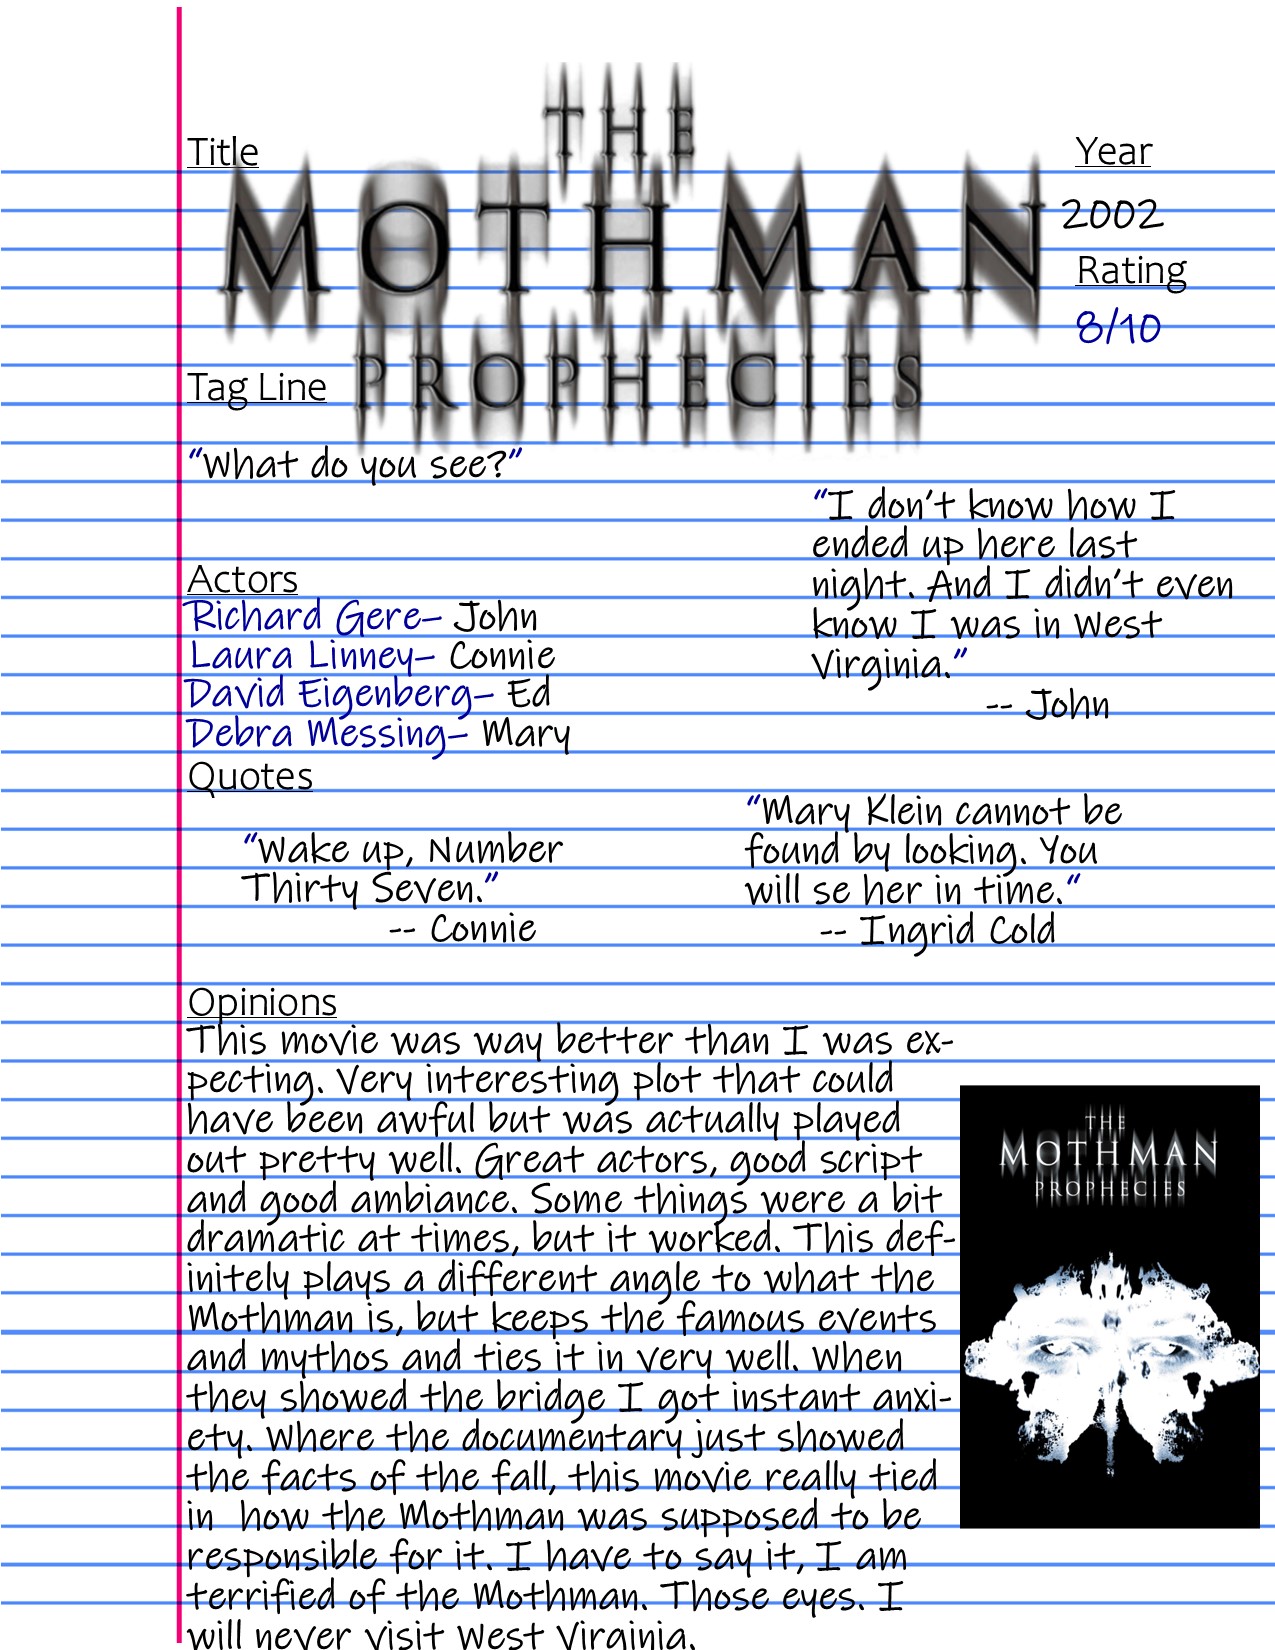 Title
THE
MOTHMAN
PROPHECIES
Year
2002
Rating
8/10
Tag Line
"What do you see?"
"I don't know how I
ended up here last
night. And I didn't even
know I was in West
Virginia."
-- John
Actors
Richard Gere– John
Laura Linney– Connie
David Eigenberg– Ed
Debra Messing– Mary
Quotes
"Wake up, Number
Thirty Seven."
-- Connie
"Mary Klein cannot be
found by looking. You
will se her in time."
-- Ingrid Cold
Opinions
This movie was way better than I was ex-
pecting. Very interesting plot that could
have been awful but was actually played
out pretty well. Great actors, good script
and good ambiance. Some things were a bit
dramatic at times, but it worked. This def-
initely plays a different angle to what the
Mothman is, but keeps the famous events
and mythos and ties it in very well. When
they showed the bridge I got instant anxi-
ety. Where the documentary just showed
the facts of the fall, this movie really tied
in how the Mothman was supposed to be
responsible for it. I have to say it, I am
terrified of the Mothman. Those eyes. I
will never visit West Virginia.
THE
MOTHMAN
PROPHECIES